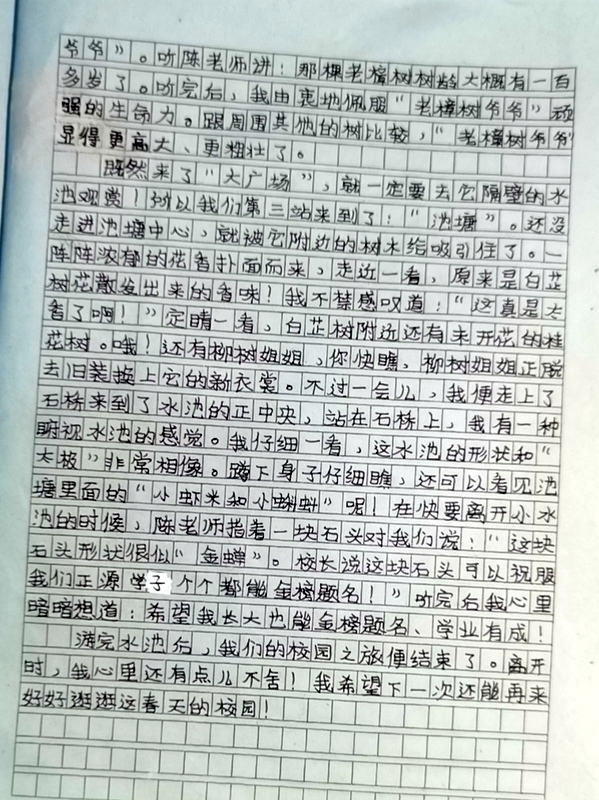 爷爷”。听陈老师讲：那棵老樟树树龄大概有一百
多岁了。听完后，我由衷地佩服“老樟树爷爷”顽
强的生命力。跟周围其他的树比较，“老樟树爷爷”
显得更高大、更粗壮了。
既然来了“大广场”，就一定要去它隔壁的水
池观赏！所以我们第三站来到了：“池塘”。还没
走进池塘中心，就被它附近的树木给吸引住了。一
阵阵浓郁的花香扑面而来，走近一看，原来是白芷
树花散发出来的香味！我不禁感叹道：“这真是太
香了啊！”定睛一看，白芷树附近还有未开花的桂
花树。哦！还有柳树姐姐，你快瞧，柳树姐姐正脱
去旧装换上它的新衣裳。不过一会儿，我便走上了
石桥来到了水池的正中央，站在石桥上，我有一种
俯视水池的感觉。我仔细一看，这水池的形状和“
太极”非常相像。蹲下身子仔细瞧，还可以看见池
塘里面的“小虾米和小蝌蚪”呢！在快要离开小水
池的时候，陈老师指着一块石头对我们说：“这块
石头形状很似“金蝉”。校长说这块石头可以祝服
我们正源学子个个都能金榜题名！”听完后我心里
暗暗想道：希望我长大也能金榜题名、学业有成！
游完水池后，我们的校园之旅便结束了。离开
时，我心里还有点儿不舍！我希望下一次还能再来
好好逛逛这春天的校园！